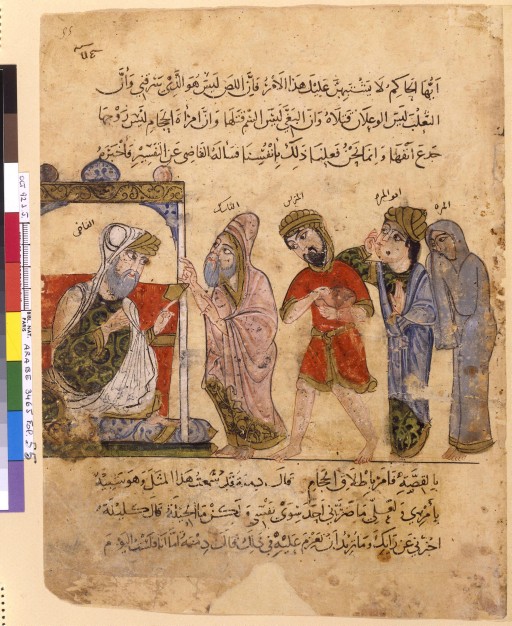 ايها الحاكم لا يشتبهن عليك هذا الامر فان اللص ليس هو الذي سرقني وان
الثعلب ليس الوعلان قتلاه وان البغي ليس السم قتلها وان امراة الحجام ليس زوجها
جدع انفها وانما نحن فعلنا ذلك بانفسنا فساله القاضي عن التفسير فاخبره
القاضي
الناسك
المزين
اخو المراه
المراه
بالقصة فامر باطلاق الحجام قال دمنه قد سمعت هذا المثل وهو شبيه
بامري لعلي ما ضرني احد سوى نفسي ولكن ما الحيلة قال كليلة
اخبرني عن رايك وما تريد ان تعزم عليه في ذلك قال دمنه اما انا فلست اليوم
BIBL. NAT. PARIS
ARABE 3465 Fol. 55